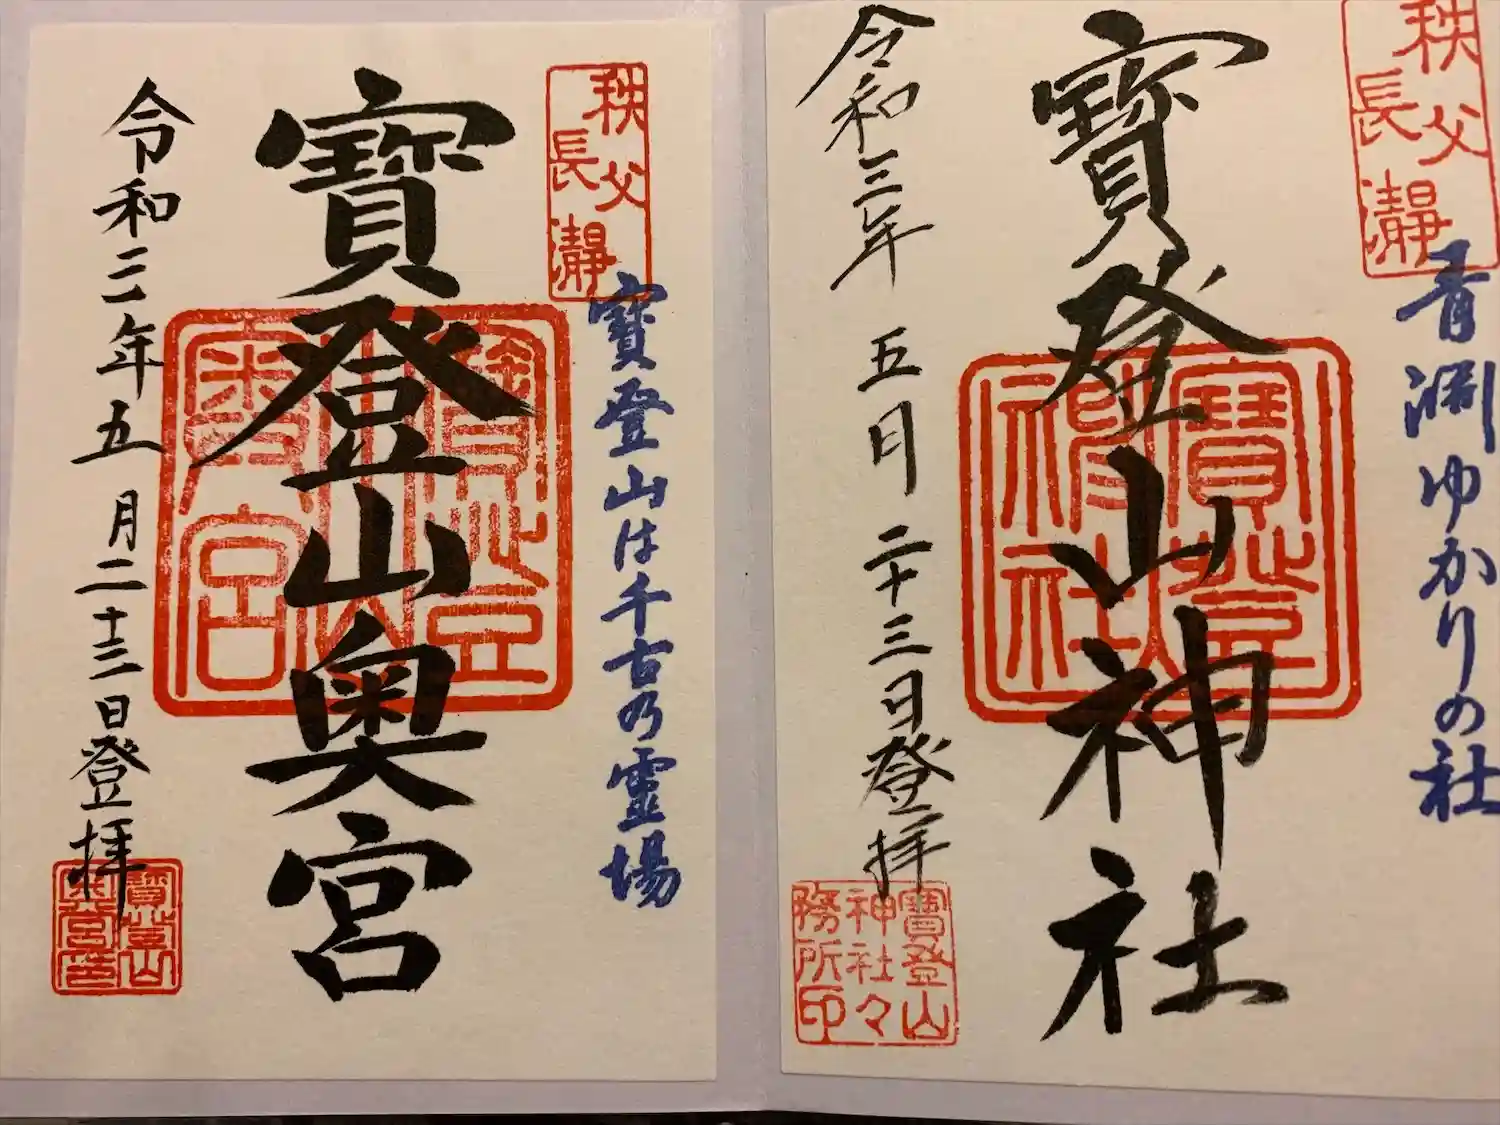 秩父
長瀞
青淵ゆかりの社
寶登山神社
寶登
山
神社
令和三年 五月 二十三日登拝
寶登山
神社々
務所印
秩父
長瀞
寶登山は千古乃靈場
寶登山奥宮
寶登
山
奥宮
令和三年五月二十三日登拝
寶登山